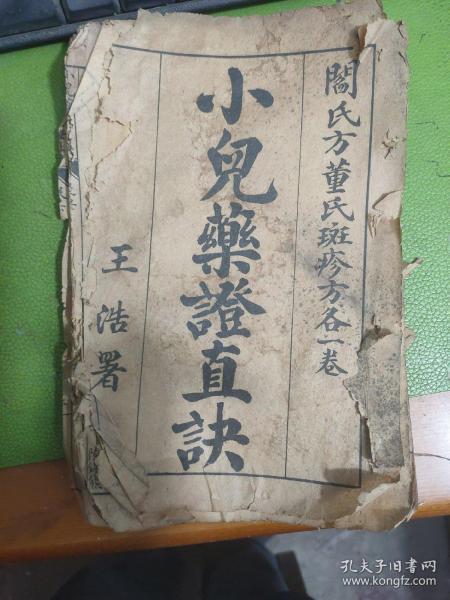 閻氏方董氏斑疹方各一卷
小兒藥證直訣
王浩署
孔夫子旧书网
www.kongfz.com